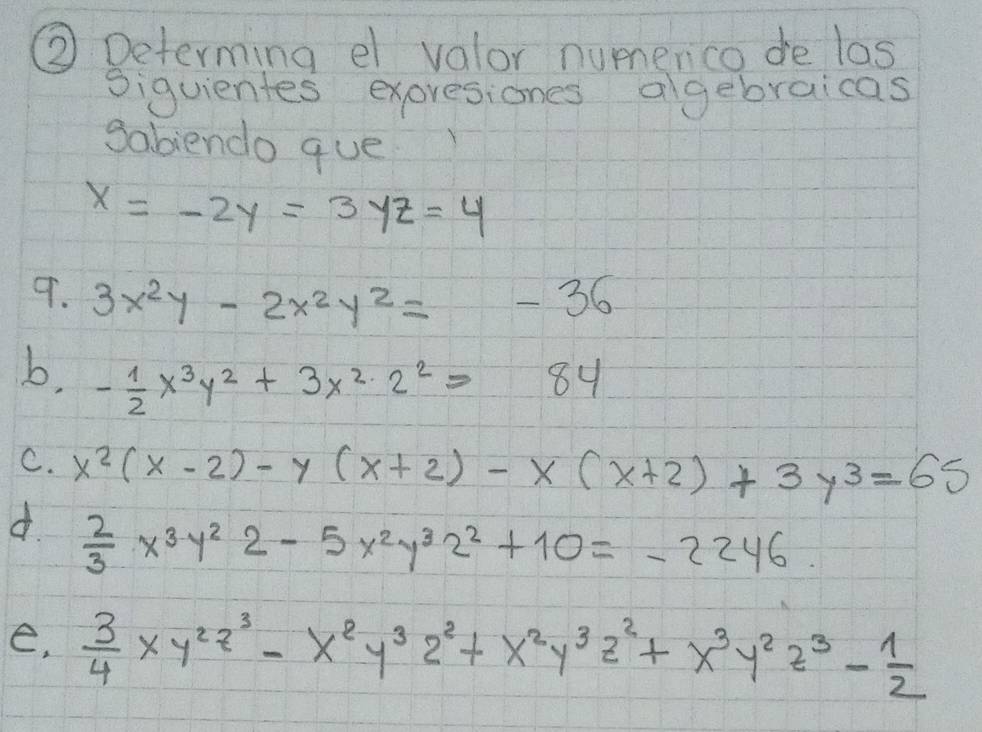 ② Determina el valor numerico de las
Siguientes expresiones algebraicas
Sabiendo que
x = -2y = 3 yz = 4
a. 3x²y - 2x²y² = -36
b. -1/2 x³y² + 3x² · 2² = 84
c. x²(x-2) - y (x+2) - x (x+2) + 3y³ = 65
d. 2/3 x³y² 2 - 5x²y³2² + 10 = -2246.
e. 3/4 xy²z³ - x²y³z² + x²y³z² + x³y²z³ - 1/2